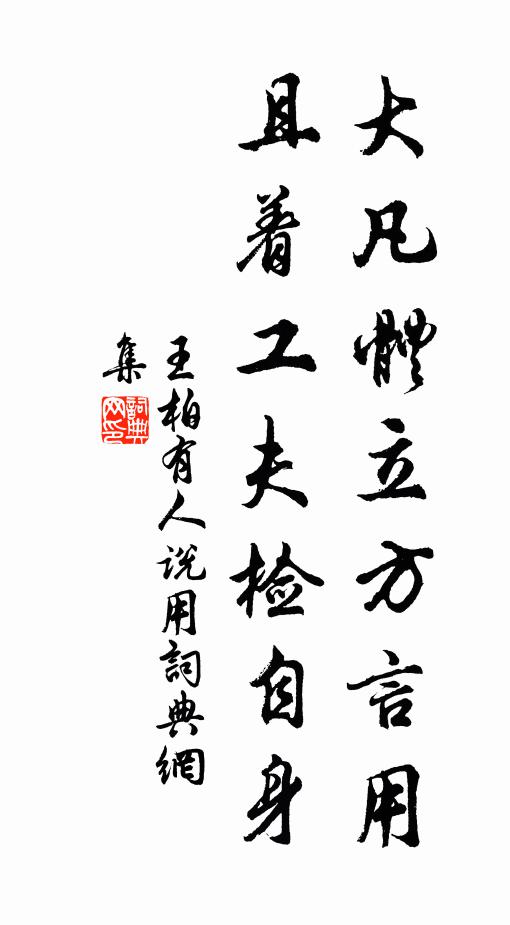 大凡體立方言用
且着工夫检自身
王柏有人说用詞典網
集
詞典网印